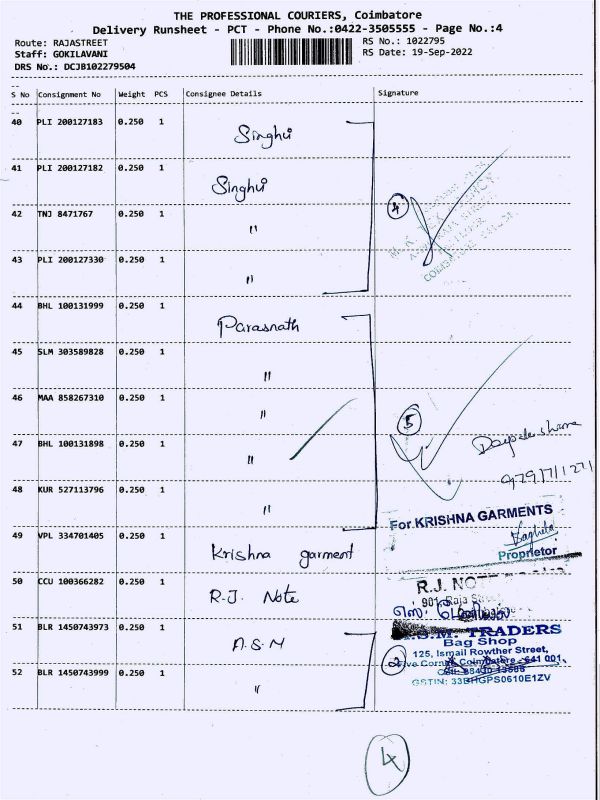 THE PROFESSIONAL COURIERS, Coimbatore
Delivery Runsheet - PCT - Phone No.:0422-3505555 - Page No.:4
Route: RAJASTREET
Staff: GOKILAVANI
DRS No.: DCJB102279504
RS No.: 1022795
RS Date: 19-Sep-2022
S No Consignment No Weight PCS Consignee Details Signature
40 PLI 200127183 0.250 1 Singhvi
41 PLI 200127182 0.250 1 Singhvi
42 TNJ 8471767 0.250 1 "
4
43 PLI 200127330 0.250 1 "
44 BHL 100131999 0.250 1 Parasnath
45 SLM 303589828 0.250 1 "
46 MAA 858267310 0.250 1 "
5
47 BHL 100131898 0.250 1 "
48 KUR 527113796 0.250 1 "
For KRISHNA GARMENTS
Proprietor
49 VPL 334701405 0.250 1 Krishna garment
50 CCU 100366282 0.250 1 R.J. Note
R.J. NOTE
901, Raja
51 BLR 1450743973 0.250 1 A.S.M
TRADERS
Bag Shop
125, Ismail Rowther Street,
Five Corner, Coimbatore - 641 001.
GSTIN: 33BHGPS0610E1ZV
52 BLR 1450743999 0.250 1 "
2
4